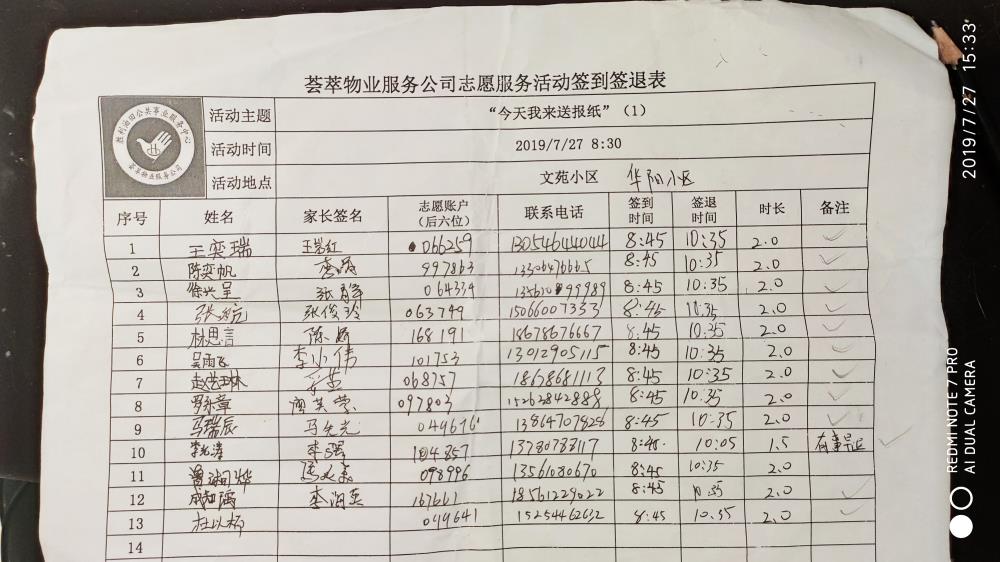 荟萃物业服务公司志愿服务活动签到签退表
胜利油田公共事业服务中心
荟萃物业服务公司
活动主题 "今天我来送报纸"（1）
活动时间 2019/7/27 8:30
活动地点 文苑小区 华阳小区
序号 姓名 家长签名 志愿账户（后六位） 联系电话 签到时间 签退时间 时长 备注
1 王奕瑞 066259 13054644044 8:45 10:35 2.0
2 陈奕帆 997863 8:45 10:35 2.0
3 徐兴呈 张静 064334 8:45 10:35 2.0
4 张航 张俊玲 063749 15066007333 8:45 10:35 2.0
5 林思言 陈娇 168191 18678676667 8:45 10:35 2.0
6 吴雨飞 李小伟 101753 13012905115 8:45 10:35 2.0
7 068757 18678681113 8:45 10:35 2.0
8 097803 15263842888 8:45 10:35 2.0
9 马瑞辰 马先光 049676 13864707828 8:45 10:35 2.0
10 李强 104857 13780788117 10:05 1.5
11 098996 13561080670 8:45 10:35 2.0
12 167661 18561229022 8:45 10:35 2.0
13 杜以桥 049641 15254462632 8:45 10:35 2.0
14
2019/7/27 15:33
REDMI NOTE 7 PRO
AI DUAL CAMERA